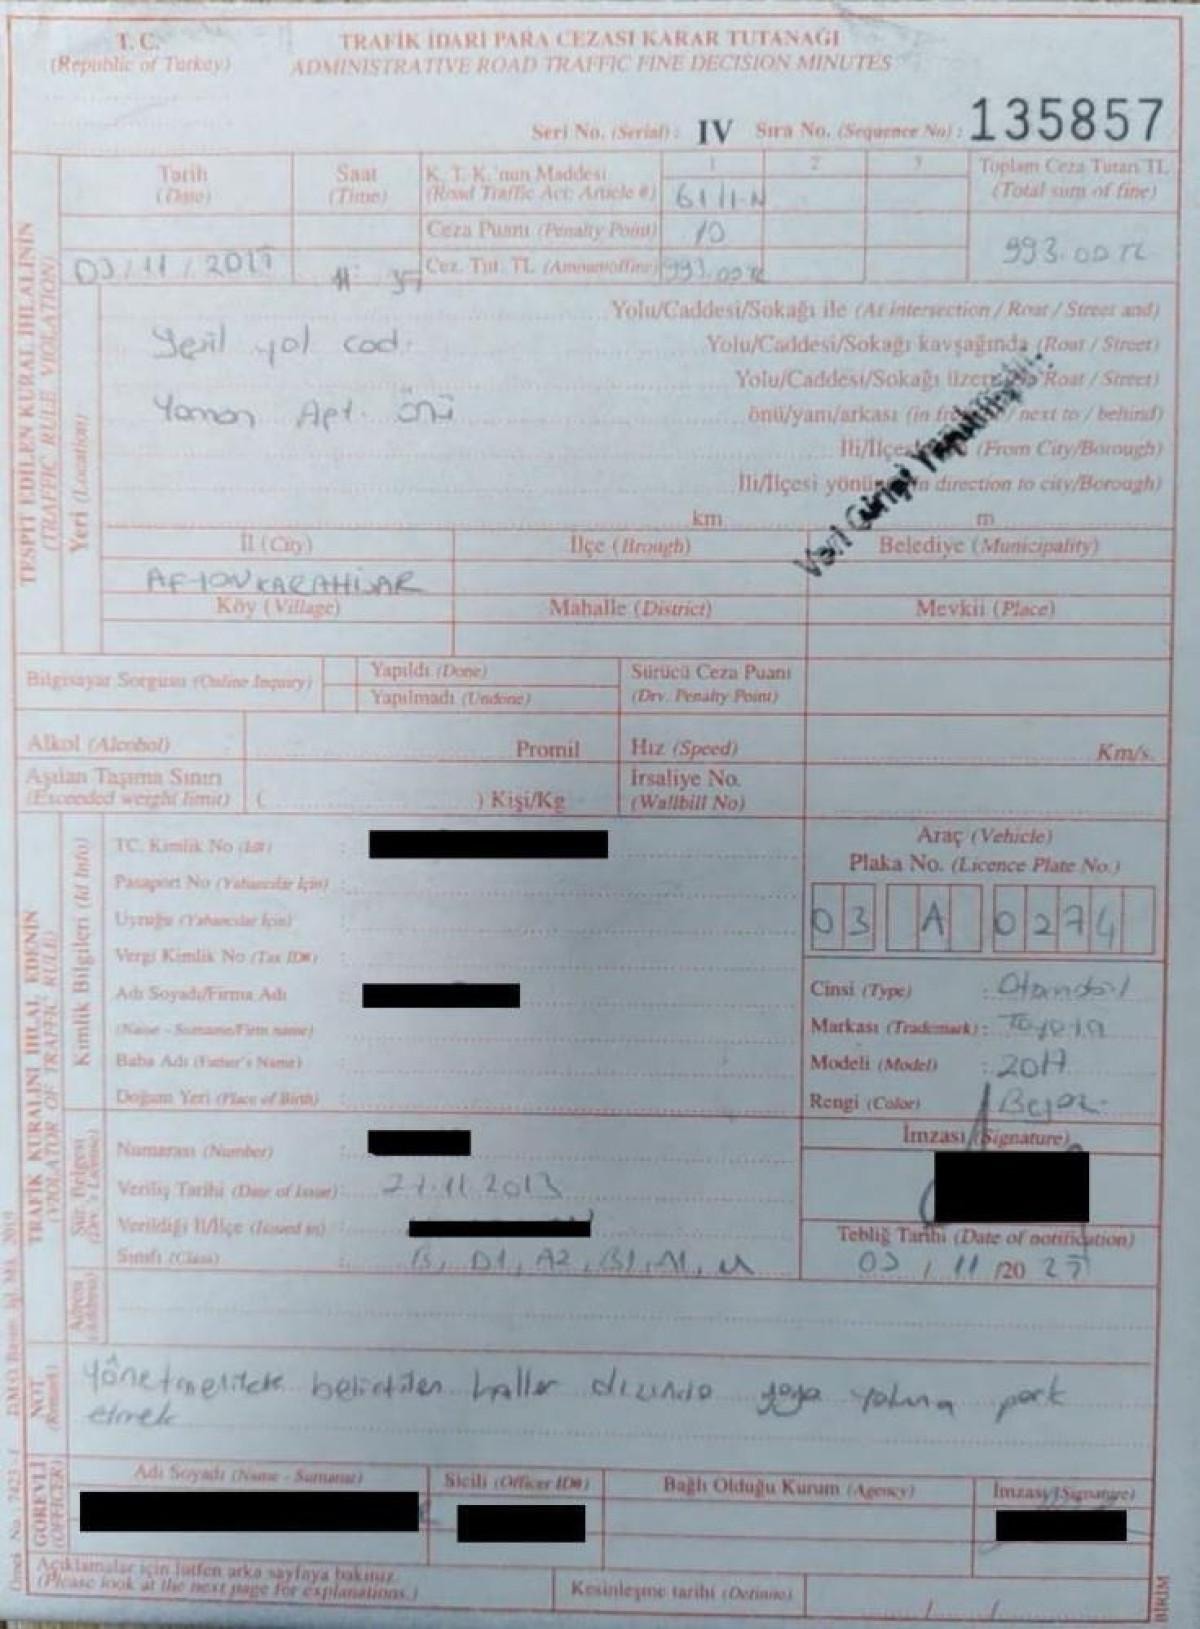 T. C.
(Republic of Turkey)
TRAFİK İDARİ PARA CEZASI KARAR TUTANAĞI
ADMINISTRATIVE ROAD TRAFFIC FINE DECISION MINUTES
Seri No. (Serial) : IV Sıra No. (Sequence No) : 135857
TESPİT EDİLEN KURAL İHLALİNİN
(TRAFFIC RULE VIOLATION)
Tarih
(Date)
03/11/2017
Saat
(Time)
K. T. K.'nun Maddesi
(Road Traffic Act: Article #)
1 2 3
61/1-N
Toplam Ceza Tutarı TL
(Total sum of fine)
Ceza Puanı (Penalty Point) 10
Cez. Tut. TL (Amountoffine) 993.00 TL
993.00 TL
Yeri (Location)
Yolu/Caddesi/Sokağı ile (At intersection / Roat / Street and)
Yeşil yol cad. Yolu/Caddesi/Sokağı kavşağında (Roat / Street)
Yolu/Caddesi/Sokağı üzerinde Roat / Street)
Yaman Apt. önü önü/yanı/arkası (in front / next to / behind)
İli/İlçesi (From City/Borough)
İli/İlçesi yönüne in direction to city/Borough)
km m
Veri Girişi Yapılmıştır.
İl (City) İlçe (Brough) Belediye (Municipality)
AFYONKARAHİSAR
Köy (Village) Mahalle (District) Mevkii (Place)
Bilgisayar Sorgusu (Online Inquiry)
Yapıldı (Done)
Yapılmadı (Undone)
Sürücü Ceza Puanı
(Drv. Penalty Point)
Alkol (Alcohol) Promil Hız (Speed) Km/s.
Aşılan Taşıma Sınırı
(Exceeded weight limit) ( ) Kişi/Kg
İrsaliye No.
(Wallbill No)
TRAFİK KURALINI İHLAL EDENİN
(VIOLATOR OF TRAFFIC RULE)
Kimlik Bilgileri (Id Info)
TC. Kimlik No (Id#) :
Pasaport No (Yabancılar İçin) :
Uyruğu (Yabancılar İçin) :
Vergi Kimlik No (Tax ID#) :
Adı Soyadı/Firma Adı
(Name - Surname/Firm name) :
Baba Adı (Father's Name) :
Doğum Yeri (Place of Birth) :
Araç (Vehicle)
Plaka No. (Licence Plate No.)
03 A 0274
Cinsi (Type) : Otomobil
Markası (Trademark) : Toyota
Modeli (Model) : 2017
Rengi (Color) : Beyaz
Sür. Belgen
(Drv.'s License)
Numarası (Number) :
Veriliş Tarihi (Date of Issue) : 27.11.2013
Verildiği İl/İlçe (Issued in) :
Sınıfı (Class) : B, D1, A2, B1, A1, M
İmzası (Signature)
Tebliğ Tarihi (Date of notification)
03 / 11 /20
Adresi
(Address)
NOT
(Remark)
Yönetmelikte belirtilen haller dışında yaya yoluna park
etmek
GÖREVLİ
(OFFICER)
Adı Soyadı (Name - Surname) Sicili (Officer ID#) Bağlı Olduğu Kurum (Agency) İmzası (Signature)
Açıklamalar için lütfen arka sayfaya bakınız.
(Please look at the next page for explanations.)
Kesinleşme tarihi (Definite) / /
BİRİM